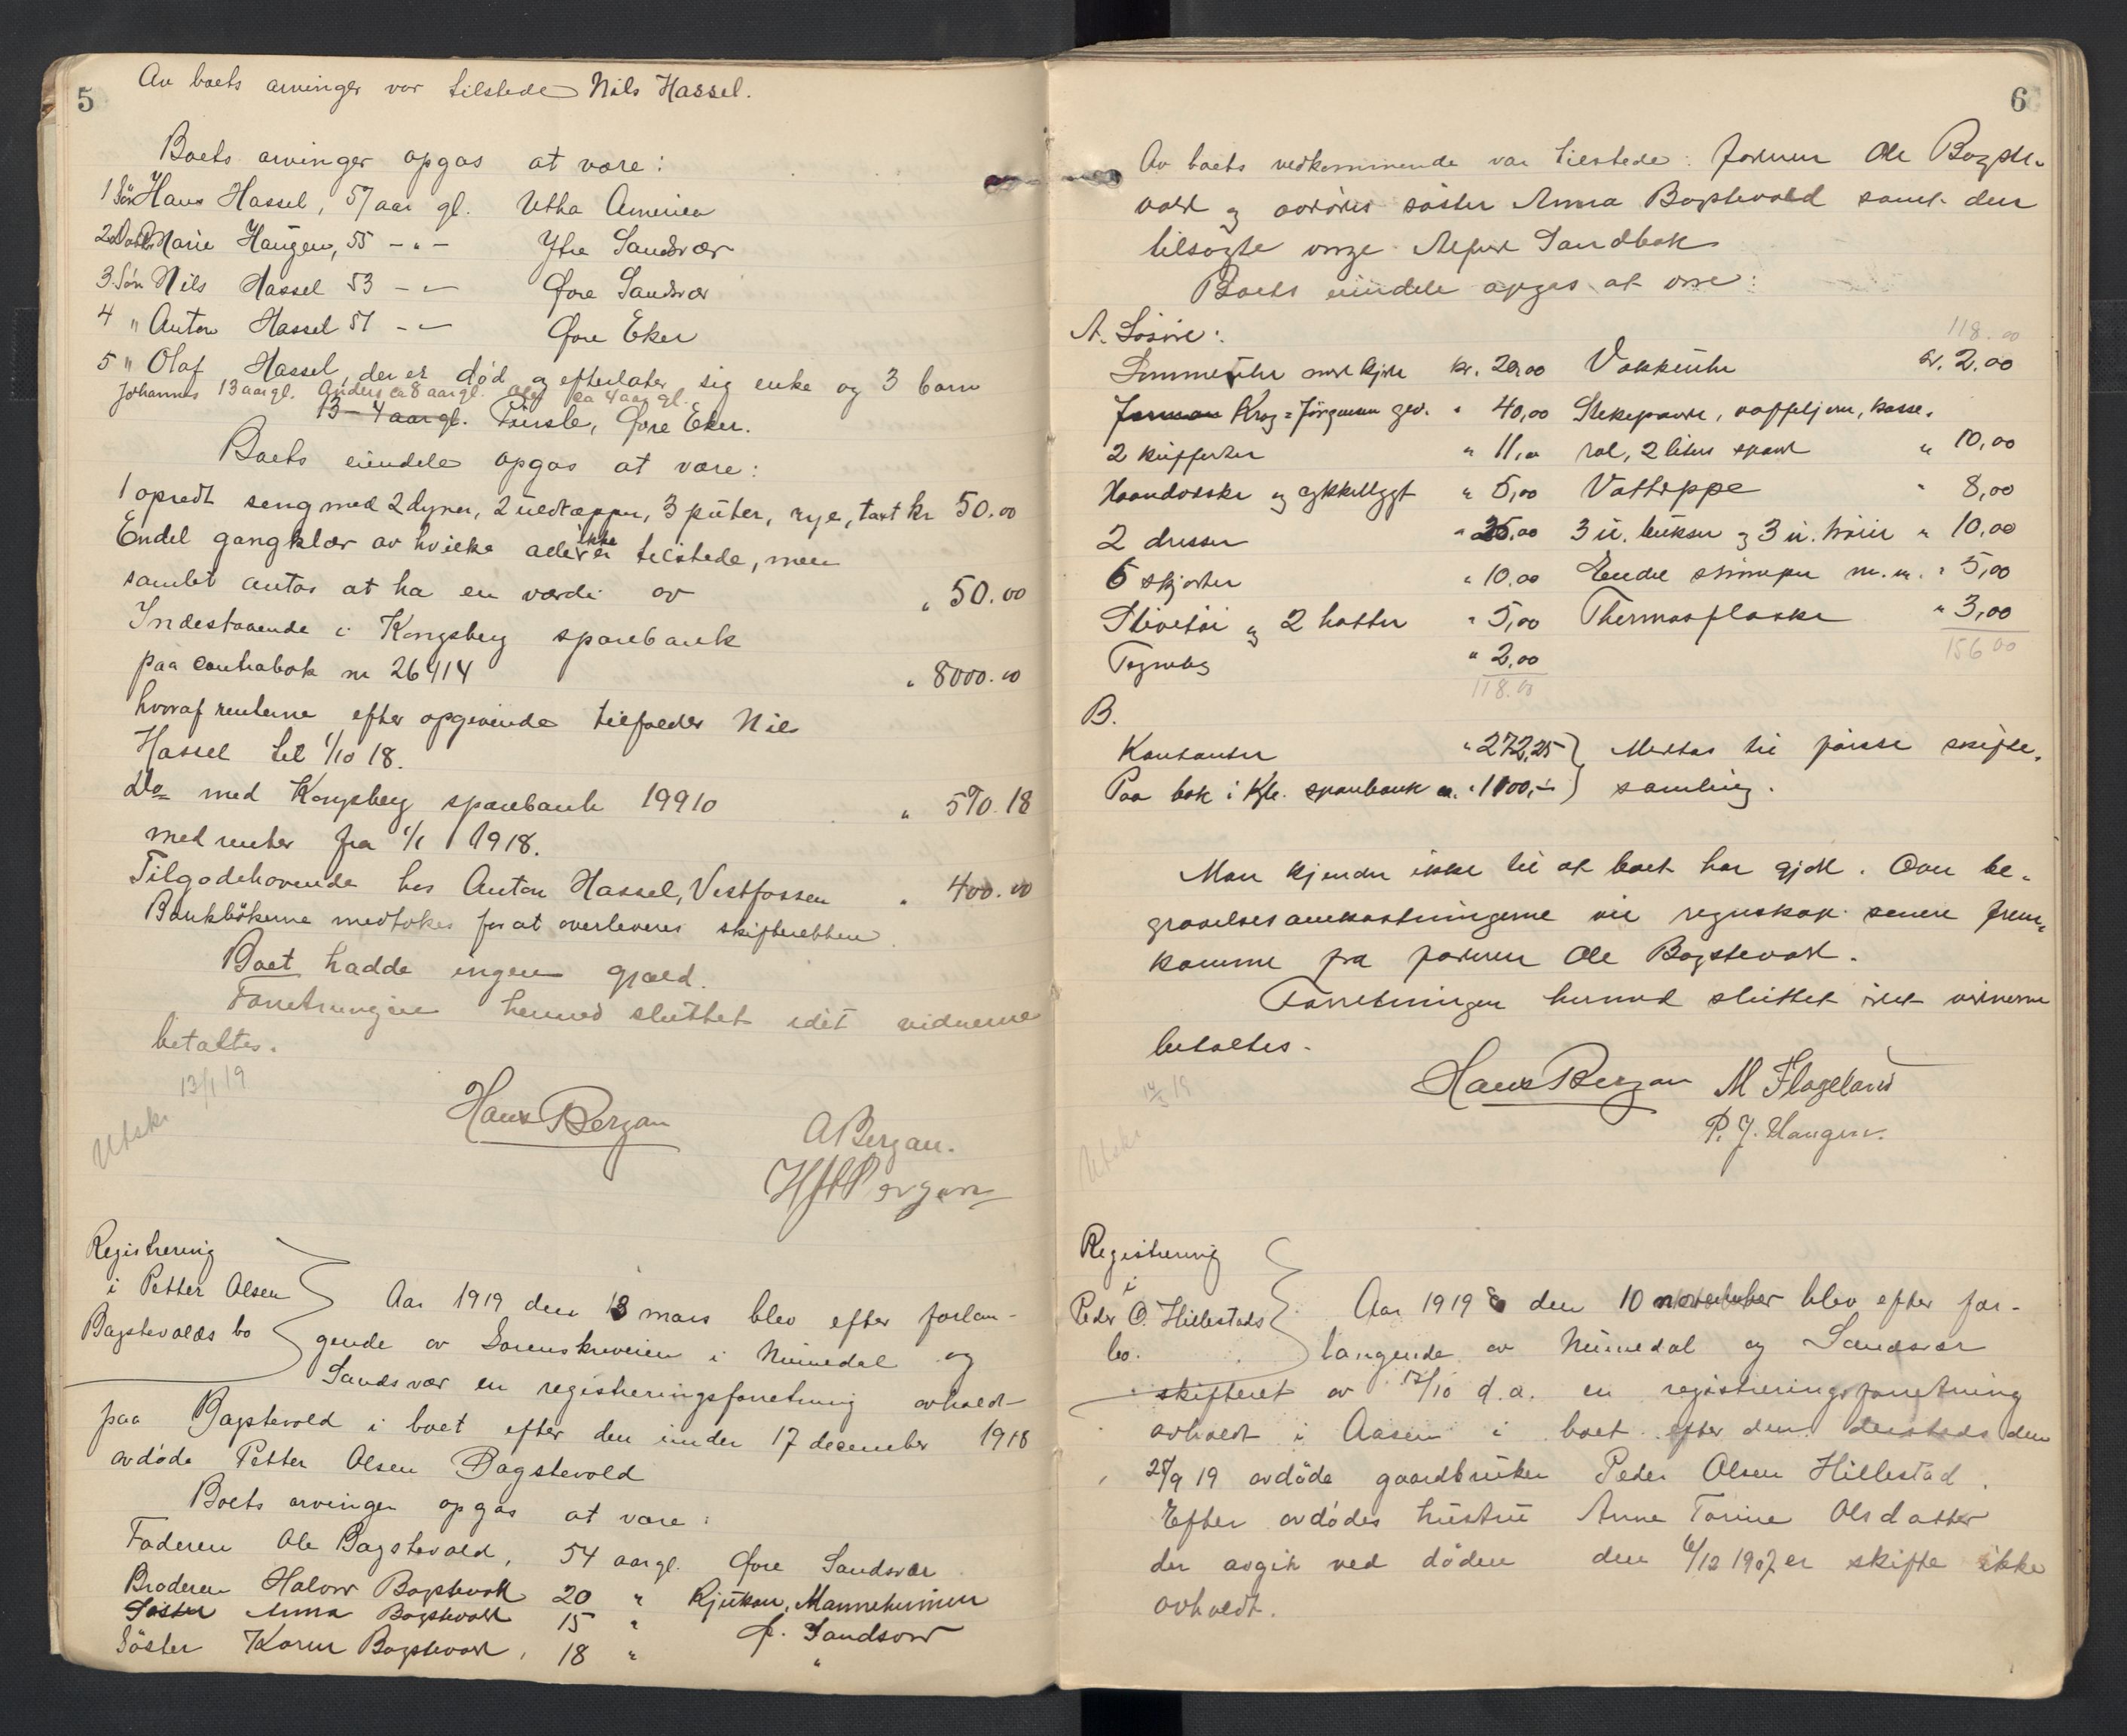 5
Av boets arvinger var tilstede Nils Hassel.
Boets arvinger opgas at være:
1 Søn Hans Hassel, 57 aar gl. Utha Amerika
2 Datter Marie Haugen, 55 - " - Ytre Sandsvær
3 Søn Nils Hassel 53 - " - Øvre Sandsvær
4 " Anton Hassel 51 - " - Øvre Eker
5 " Olaf Hassel, der er død og efterlater sig enke og 3 barn
Johannes 13 aar gl. Anders ca 8 aar gl. ca 4 aar gl.
13 - 4 aar gl. Øvre Eker.
Boets eiendele opgas at være:
1 opredt seng med 2 dyner, 2 uldtæpper, 3 puter, rye, taxt kr 50.00
Endel gangklær av hvilke alle ikke er tilstede, men
samlet antas at ha en værdi av " 50.00
Indestaaende i Kongsberg sparebank
paa contrabok nr 26414 " 8000.00
hvoraf renterne efter opgivende tilfalder Nils
Hassel til 1/10 18.
Do med Kongsberg sparebank 19910 " 590.18
med renter fra 1/1 1918.
Tilgodehavende hos Anton Hassel, Vestfossen " 400.00
Bankbøkerne medtokes for at overleveres skifteretten.
Boet hadde ingen gjæld.
Forretningen hermed sluttet idet vidnerne
betaltes.
13/1 19
Utskr
Hans Bergan
A Bergan.
Registrering
i Petter Olsen
Bagstevolds bo
Aar 1919 den 18 mars blev efter forlan-
gende av Sorenskriveren i Numedal og
Sandsvær en registreringsforretning avholdt
paa Bagstevold i boet efter den under 17 december 1918
avdøde Petter Olsen Bagstevold
Boets arvinger opgas at være:
Faderen Ole Bagstevold, 54 aar gl. Øvre Sandsvær
Broderen Halvor Bagstevold 20 " Rjukan, Mannheimen
Søster Anna Bagstevold 15 " Ø. Sandsvær
Søster Karen Bagstevold, 18 " "
6
Av boets vedkommende var tilstede: farmen Ole Bagste-
vold og avdødes søster Anna Bagstevold samt den
tilsagte verge Alfred Sandbæk
Boets eiendele opgas at være:
A. Løsøre:
118.00
Lommeuhr med kjede kr. 20.00 Vækkeuhr kr. 2.00
Krag-Jørgensen gev. " 40,00 Stekepande, vaffeljern, kasse-
2 kufferter " 11,00 rol, 2 liters spand " 10,00
Haandvæske og cykkellygt " 5,00 Vattæppe " 8,00
2 dresser " 25,00 3 u. bukser og 3 u. trøier " 10,00
6 skjorter " 10.00 Endel strømper m.m. " 5,00
Stivetøi og 2 hatter " 5,00 Thermosflaske " 3,00
" 2,00
118.00
156 00
B.
Kontanter " 272,25 } Medtas til første skifte-
Paa bok i Kbg. sparebank ca. " 1100,- } samling.
Man kjender ikke til at boet har gjæld. Over be-
gravelsesomkostningerne vil regnskap senere frem-
komme fra farmen Ole Bagstevold.
Forretningen hermed sluttet idet vidnerne
betaltes.
Utskr
Hans Bergan
M Flageland
P. J. Haugen.
Registrering
i
Peder O. Hillestads
bo.
Aar 1919 den 10 november blev efter for-
langende av Numedal og Sandsvær
skifteret av 15/10 d.a. en registreringsforretning
avholdt i Aasen i boet efter den dersteds den
25/9 19 avdøde gaardbruker Peder Olsen Hillestad.
Efter avdødes hustru Anne Torine Olsdatter
der avgik ved døden den 6/12 1907 er skifte ikke
avholdt.